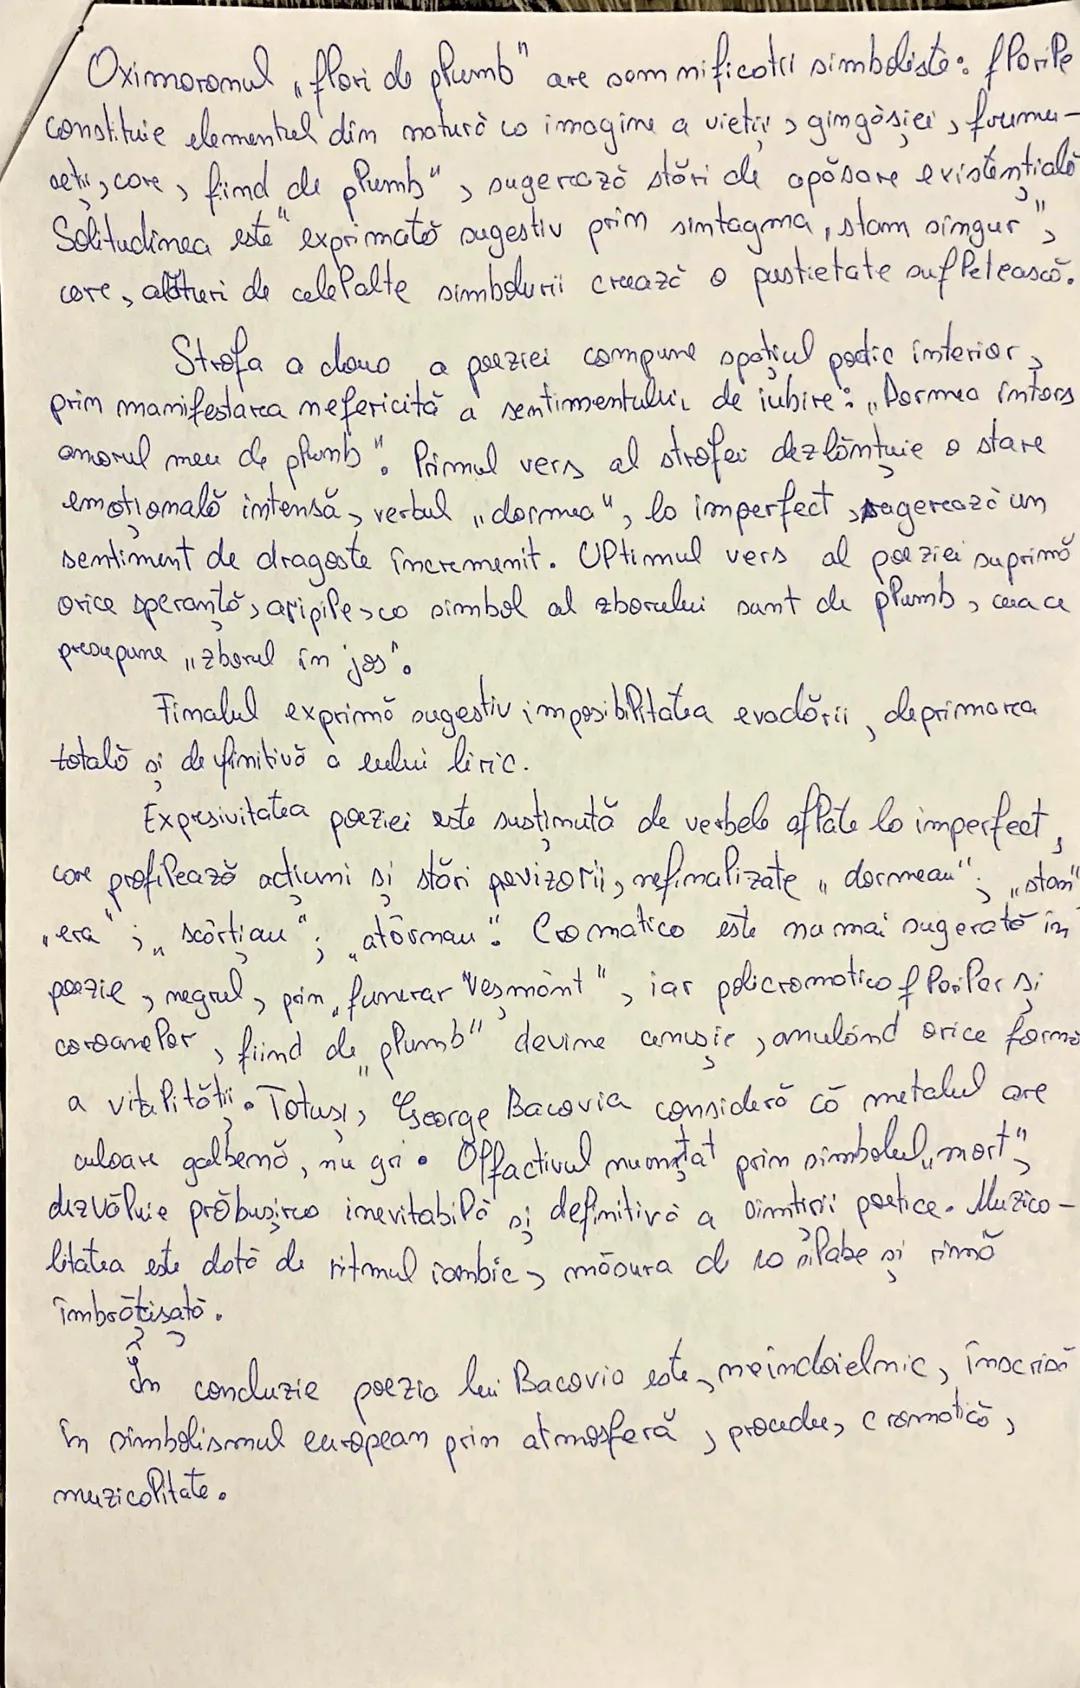 Oximoronul „flori de plumb" are semnificații simboliste: florile
constituie elementul din natură ca imagine a vieții, gingășiei, frumu-
seții, care, fiind de „plumb", sugerează stări de apăsare existențială
Solitudinea este exprimată sugestiv prin sintagma „stam singur",
care, alături de celelalte simboluri creează o pustietate sufletească.
Strofa a doua a poeziei compune spațiul poetic interior,
prin manifestarea nefericită a sentimentului de iubire: „Dormea întors
amorul meu de plumb". Primul vers al strofei dezlănțuie o stare
emoțională intensă, verbul „dormea", la imperfect, sugerează un
sentiment de dragoste încremenit. Ultimul vers al poeziei suprimă
orice speranță, aripile, ca simbol al zborului sunt de plumb, ceea ce
presupune „zborul în jos".
Finalul exprimă sugestiv imposibilitatea evadării, deprimarea
totală și definitivă a eului liric.
Expresivitatea poeziei este susținută de verbele aflate la imperfect,
care profilează acțiuni și stări provizorii, nefinalizate „dormeau"; „stam"
„era"; „scârțiau"; „atârnau". Cromatica este numai sugerată în
poezie, negrul, prin „funerar veșmânt", iar policromatica florilor și
coroanelor, fiind de „plumb" devine cenușie, anulând orice formă
a vitalității. Totuși, George Bacovia consideră că metalul are
culoare galbenă, nu gri. Olfactivul nuanțat prin simbolul „mort",
dezvăluie prăbușirea inevitabilă și definitivă a simțirii poetice. Muzica-
litatea este dată de ritmul iambic, măsura de 10 silabe și rimă
îmbrățișată.
În concluzie poezia lui Bacovia este, neîndoielnic, înscrisă
în simbolismul european prin atmosferă, procedee, cromatică,
muzicalitate.